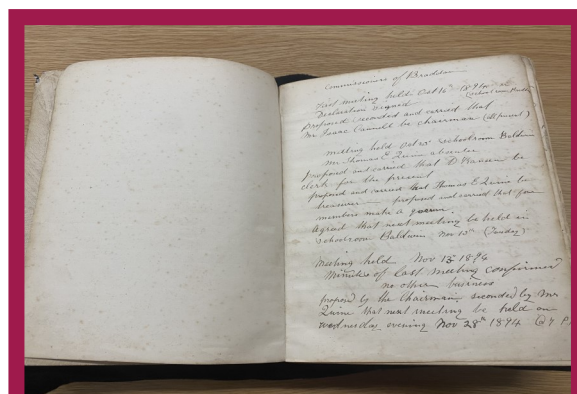 Commissioners of Braddan
First meeting held Oct 14th 1894 at
Schoolroom Baldwin
Declaration Signed
Proposed seconded and carried that
Mr Isaac Cannell be chairman (at present)
meeting held Oct schoolroom Baldwin
Mr Thomas E Quine absentee
Proposed and carried that D be
clerk for the present
proposed and carried that Thomas E Quine be
treasurer proposed and carried that four
members make a quorum.
Agreed that next meeting be held in
schoolroom Baldwin Nov 13th (Tuesday)
Meeting held Nov 13 1894
Minutes of last meeting confirmed
no other business
proposed by the Chairman, seconded by Mr
Quine that next meeting be held on
wednesday evening Nov 28th 1894 @ 7 P.